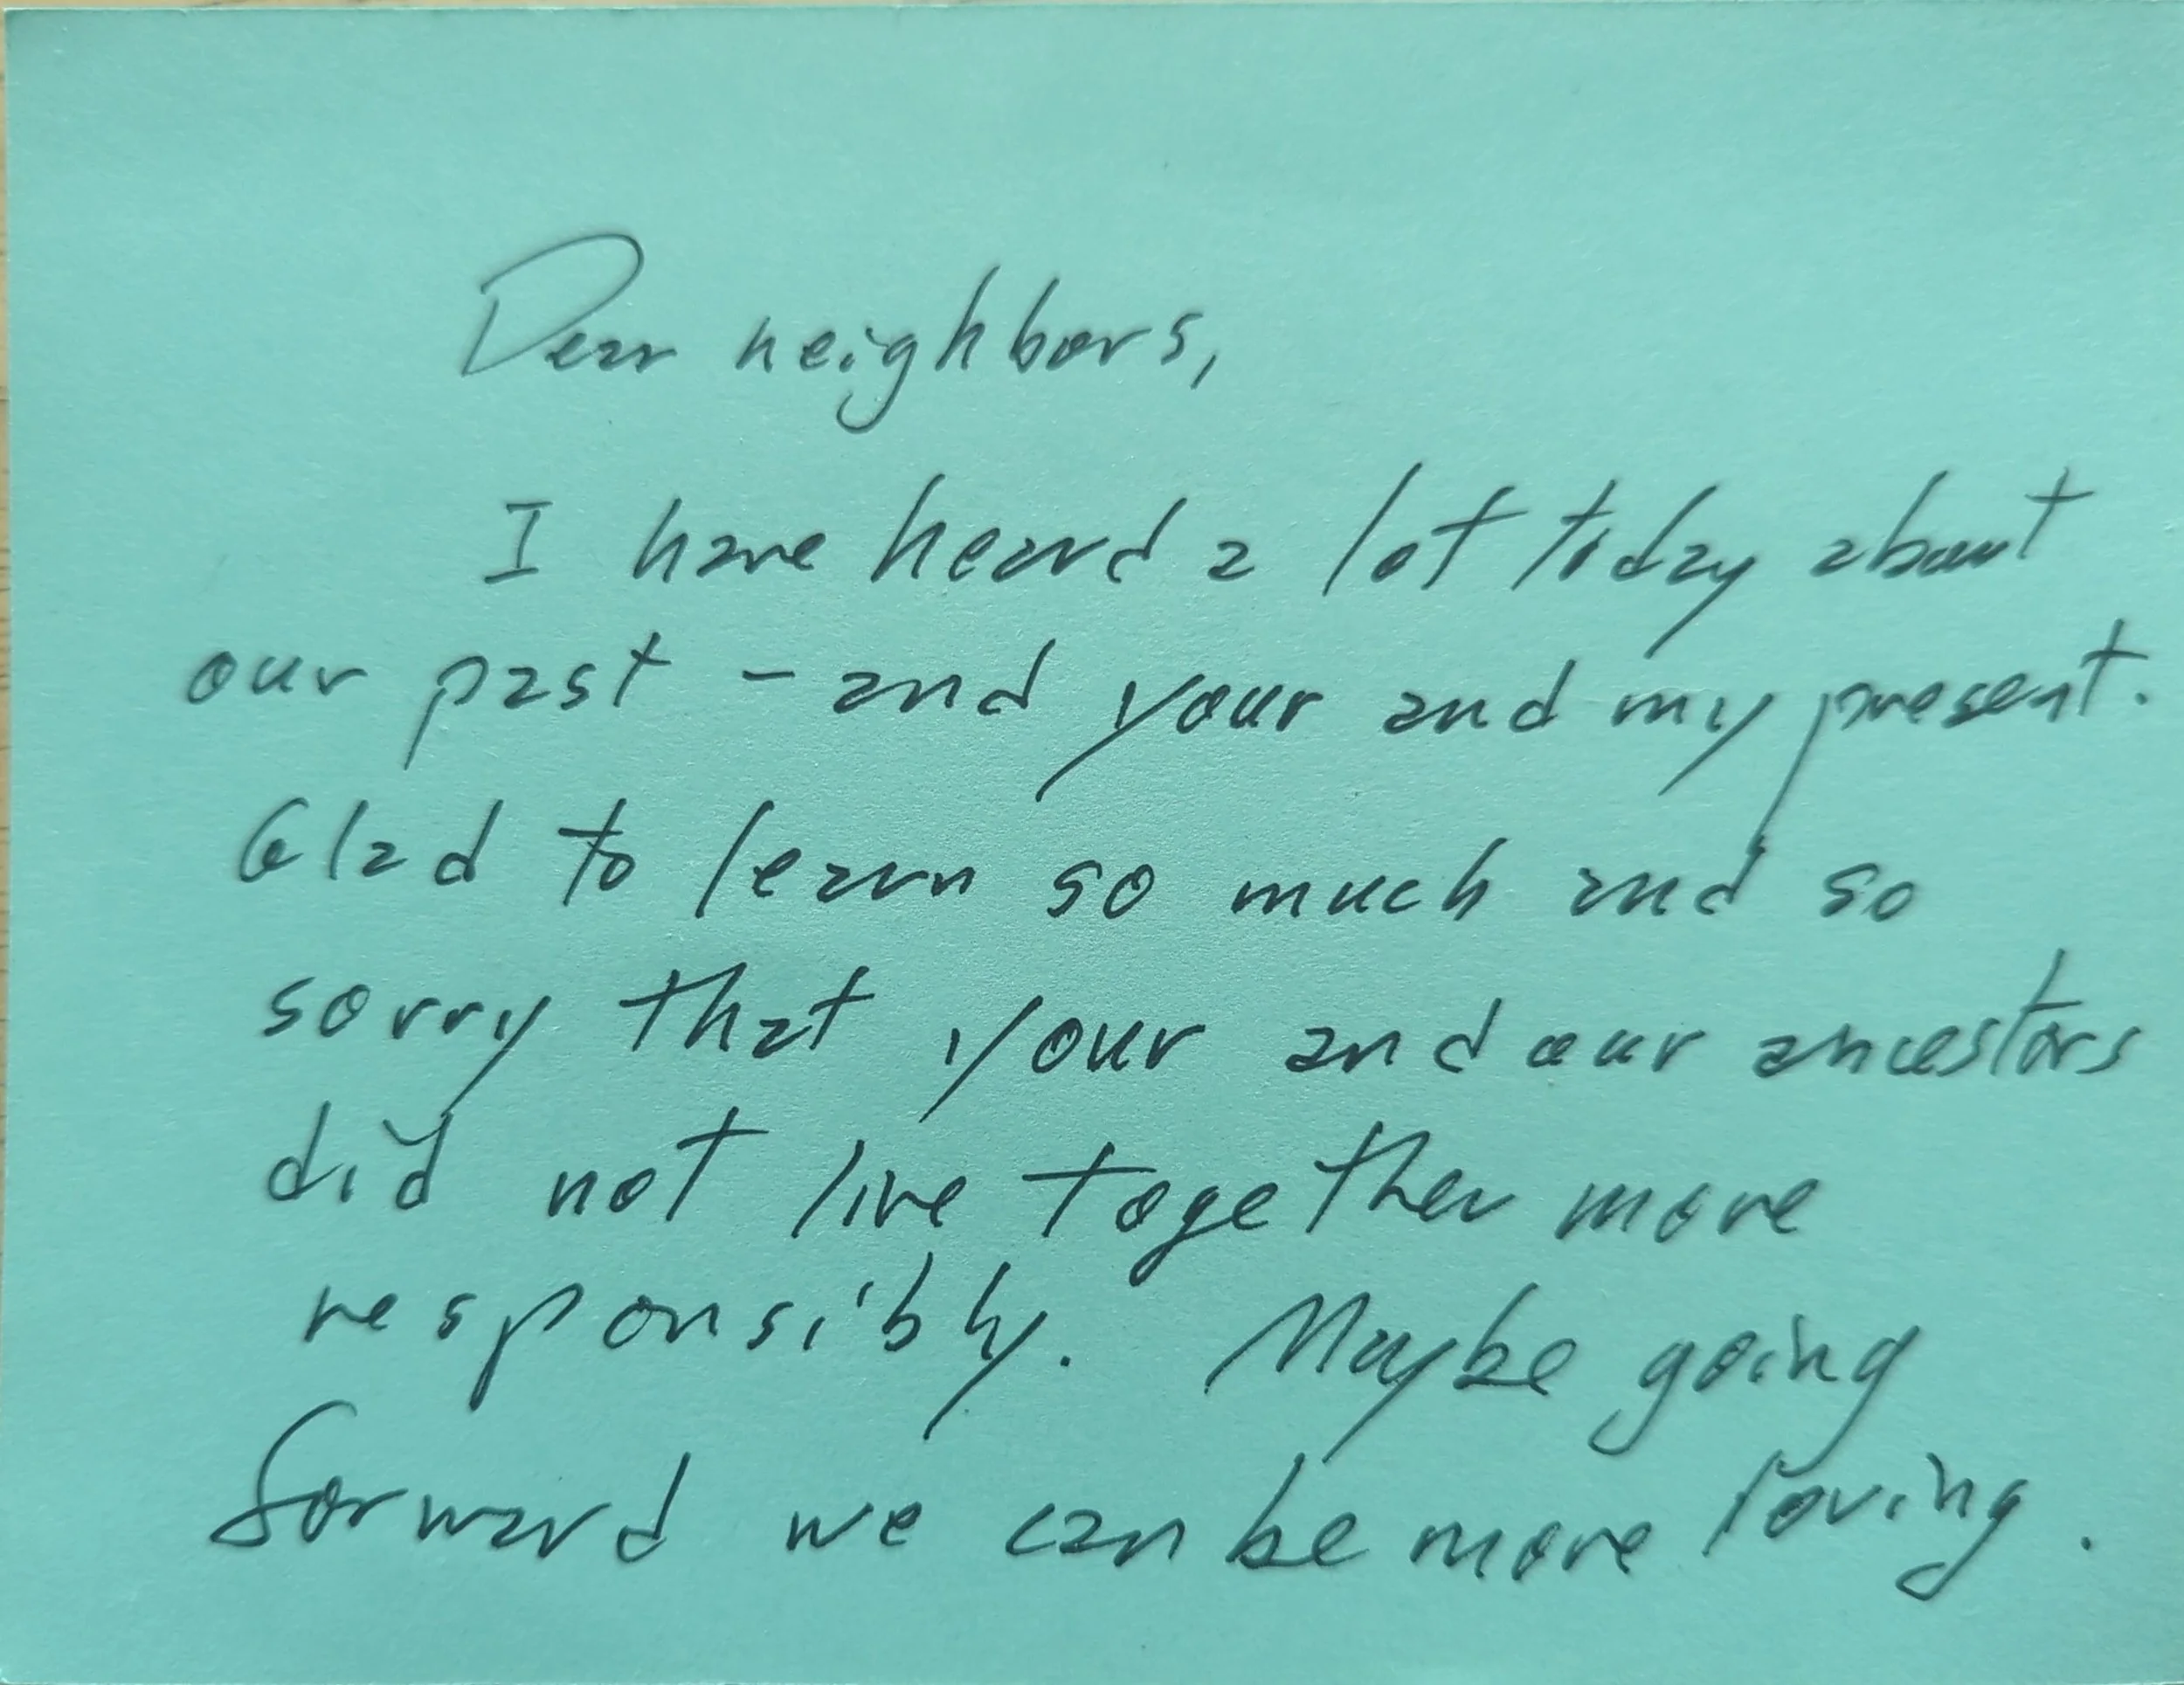 Dear neighbors,
I have heard a lot today about
our past - and your and my present.
Glad to learn so much and so
sorry that your and our ancestors
did not live together more
responsibly. Maybe going
forward we can be more loving.